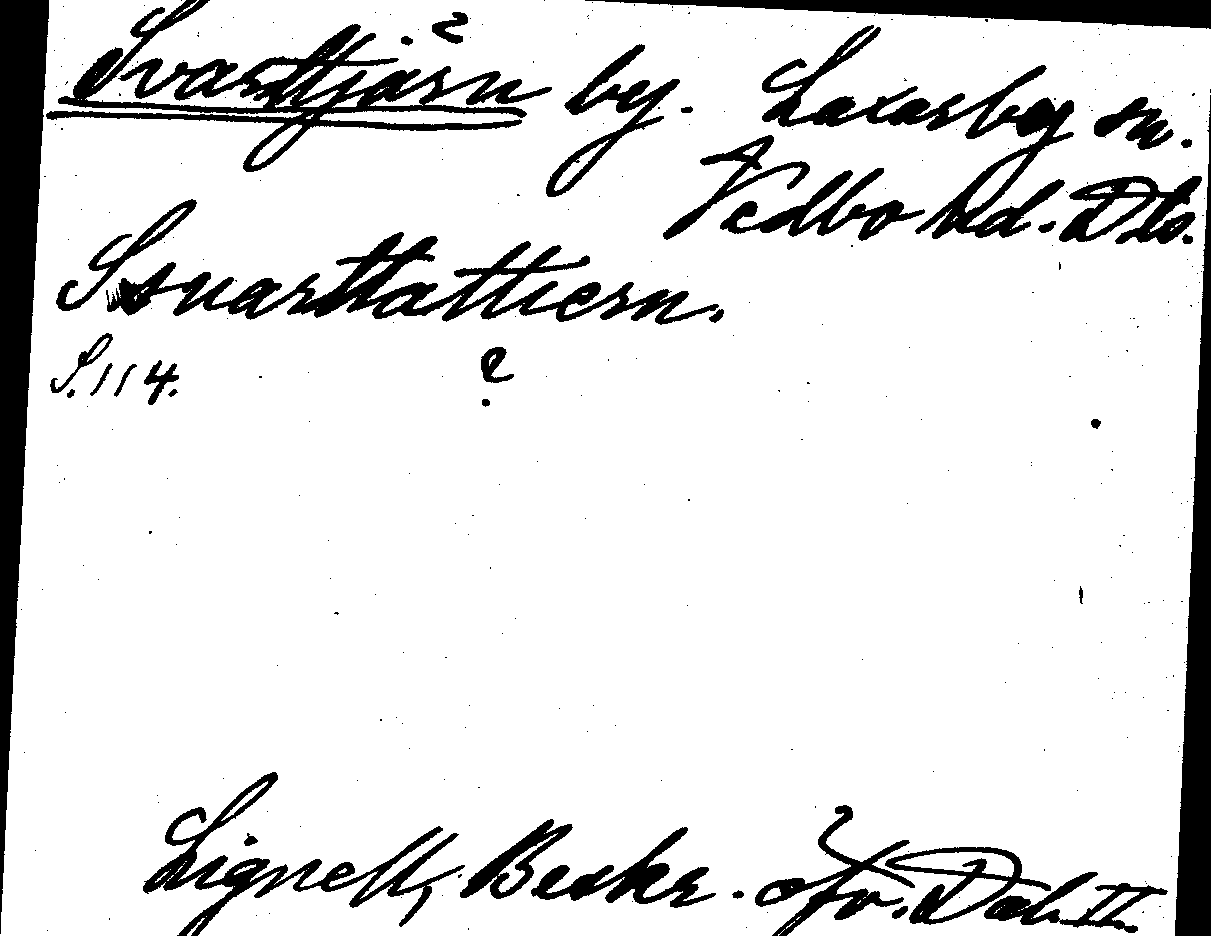 Svarttjärn by. Laxarby sn.
Vedbo hd. Dls.
Suarttattiern.
S. 114.
?
Lignell, Beskr. öfv. Dal. II.